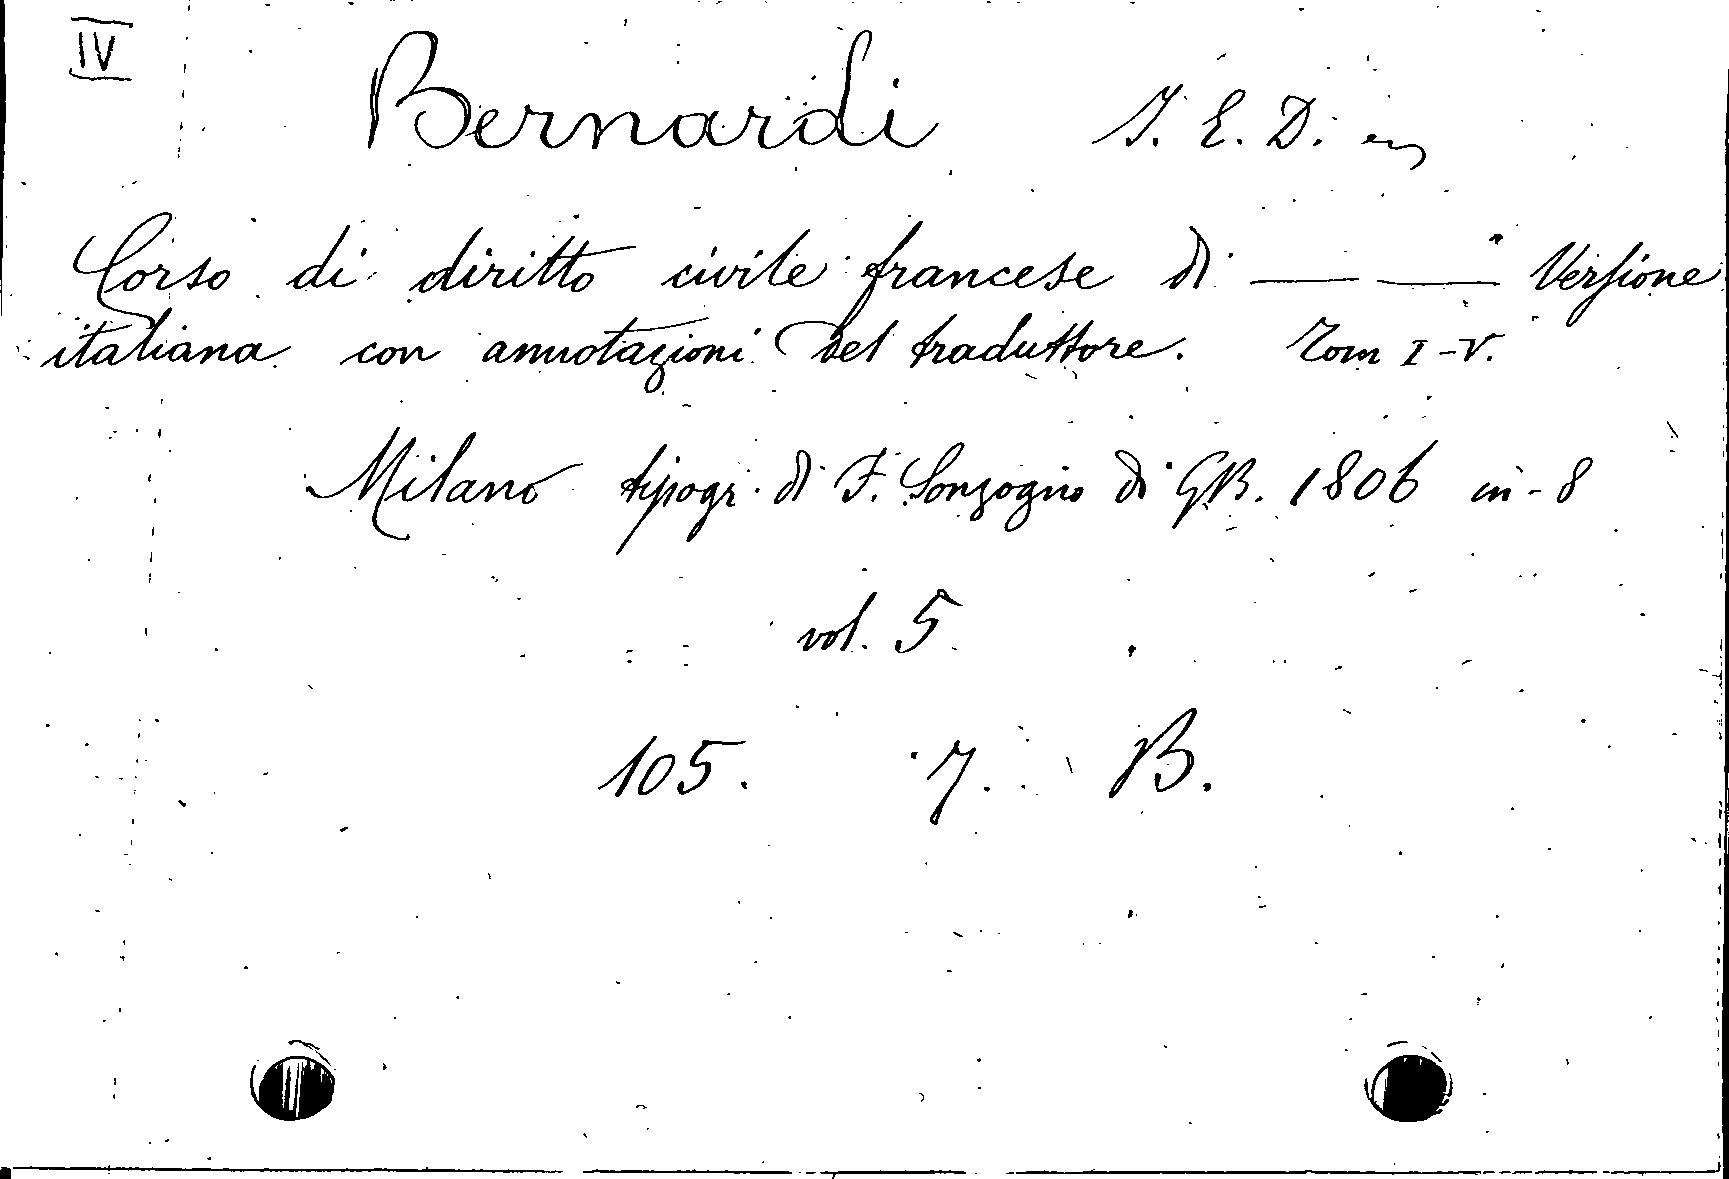 IV
Bernardi J. E. D.
Corso di diritto civile francese di — — Versione
italiana con annotazioni del traduttore. Tom I-V.
Milano tipogr. di F. Sonzogno di GB. 1806 in-8
vol. 5
105. 7. B.